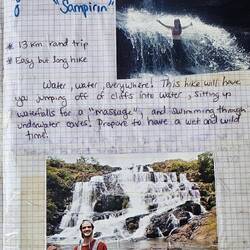 "Sampirin"
* 13 km. rand trip
* Easy but long hike
Water, water, everywhere! This hike will have
you jumping off of cliffs into water, sitting up
waterfalls for a "massage", and swimming through
underwater caves! Prepare to have a wet and wild
time!